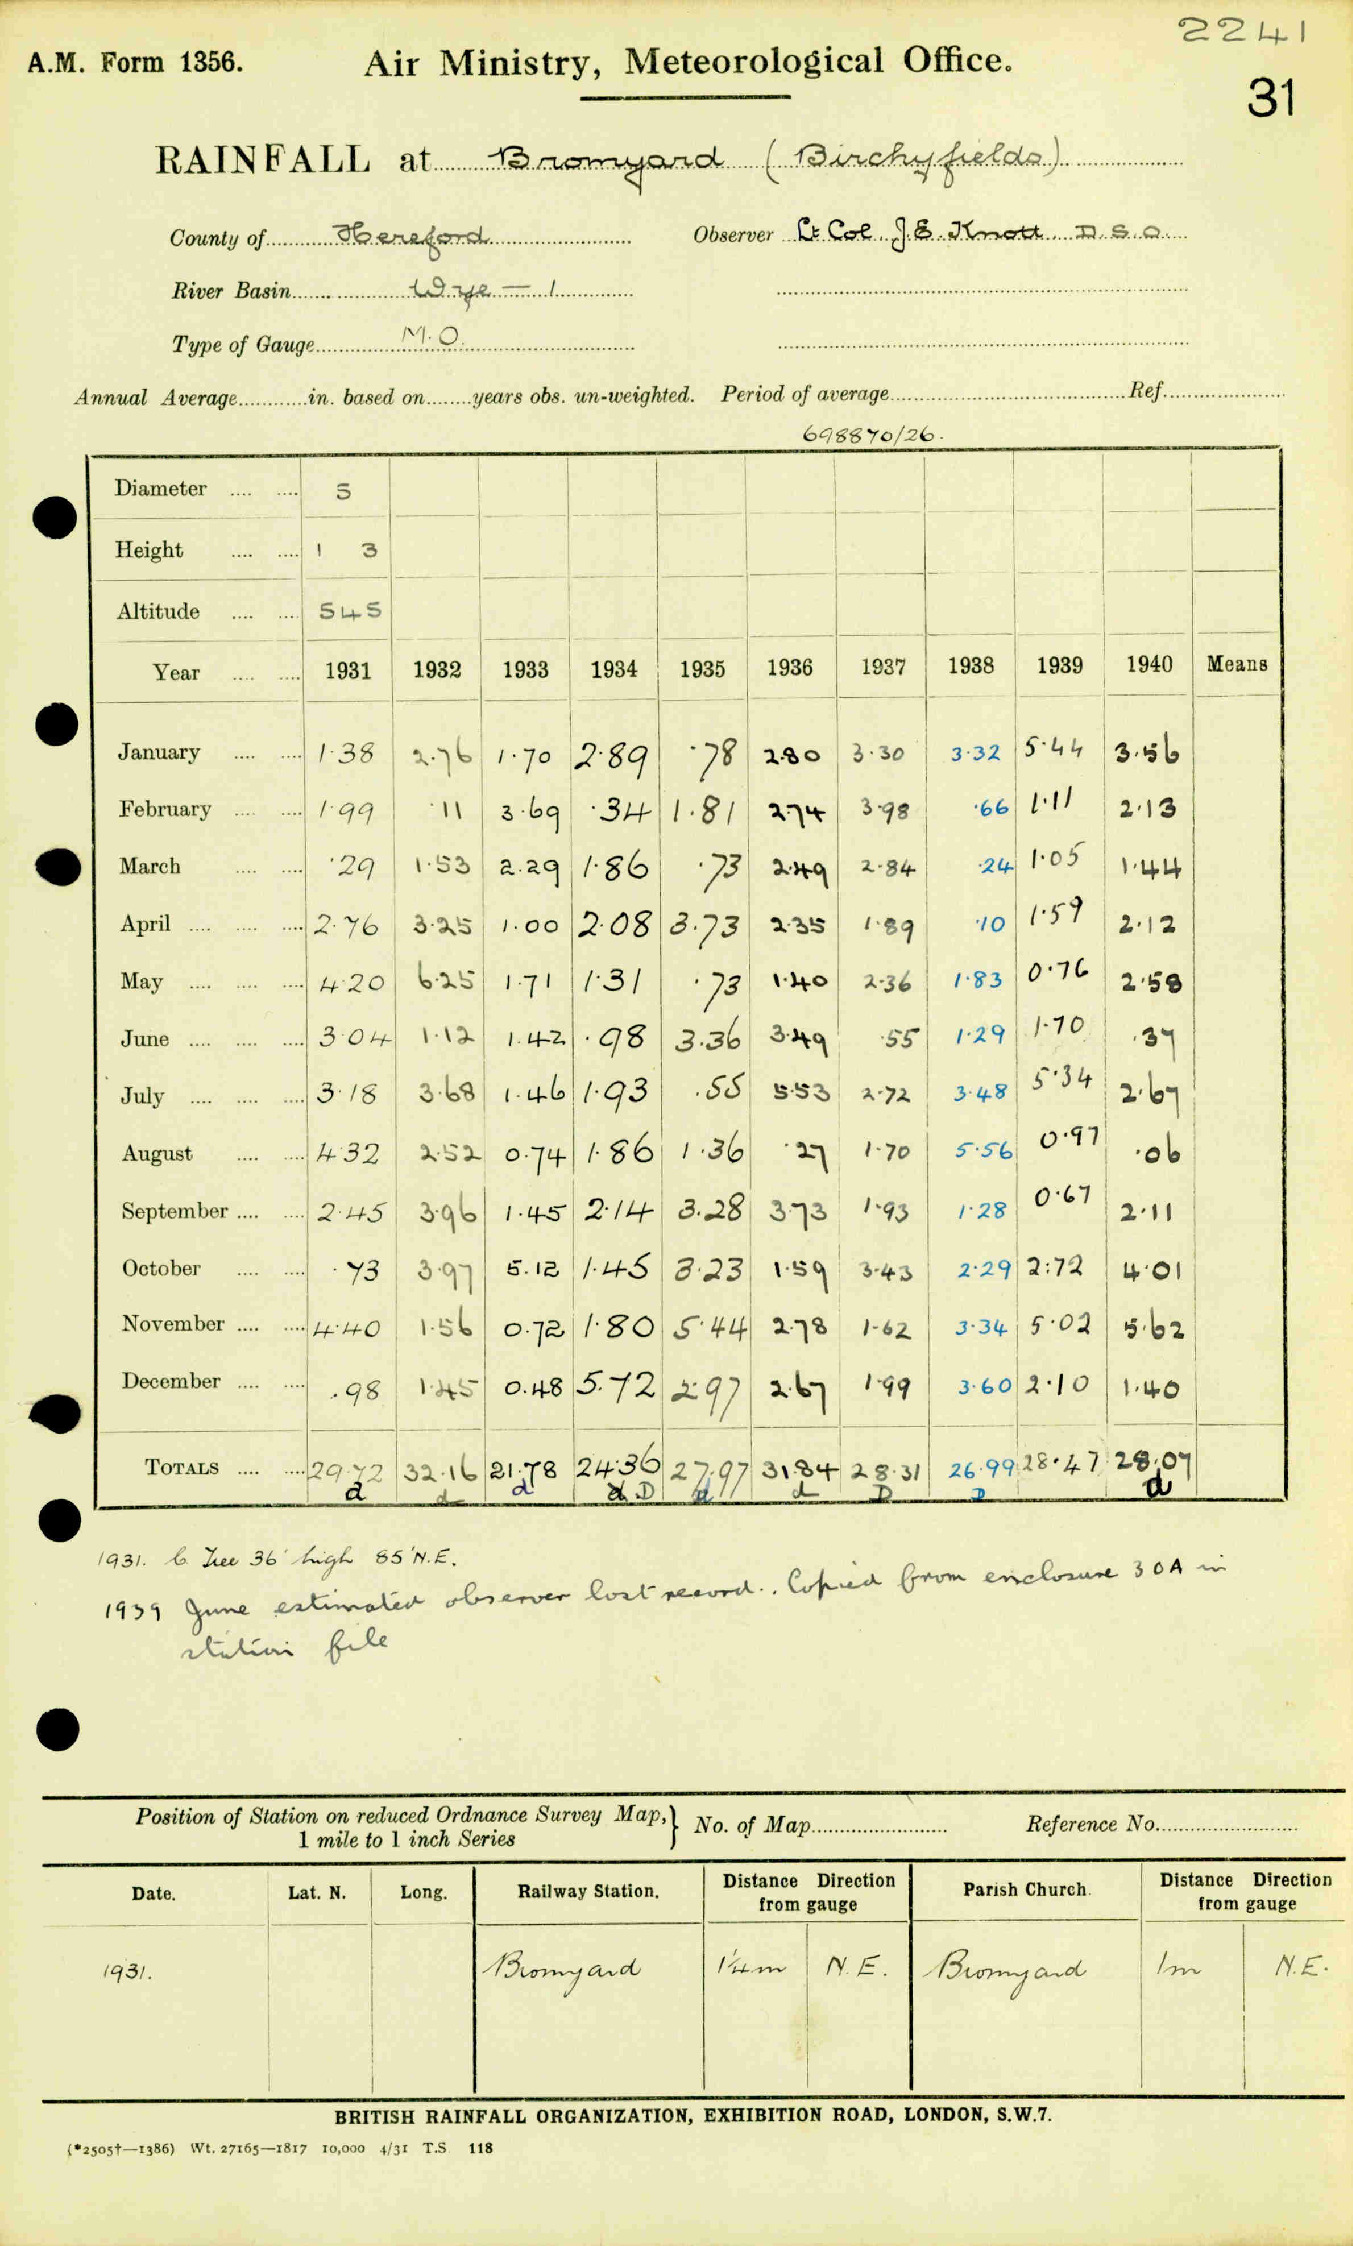 2241
A.M. Form 1356. Air Ministry, Meteorological Office.
31
RAINFALL at Bromyard (Birchyfields)
County of Hereford Observer Lt Col J.E. Knott D.S.O.
River Basin Wye — 1
Type of Gauge M.O.
Annual Average in. based on years obs. un-weighted. Period of average Ref.
698870/26.
Diameter 5
Height 1 3
Altitude 545
Year 1931 1932 1933 1934 1935 1936 1937 1938 1939 1940 Means
January 1.38 2.76 1.70 2.89 .78 2.80 3.30 3.32 5.44 3.56
February 1.99 .11 3.69 .34 1.81 2.74 3.98 .66 1.11 2.13
March .29 1.53 2.29 1.86 .73 2.49 2.84 .24 1.05 1.44
April 2.76 3.25 1.00 2.08 3.73 2.35 1.89 .10 1.59 2.12
May 4.20 6.25 1.71 1.31 .73 1.40 2.36 1.83 0.76 2.58
June 3.04 1.12 1.42 .98 3.36 3.49 .55 1.29 1.70 .37
July 3.18 3.68 1.46 1.93 .55 5.53 2.72 3.48 5.34 2.67
August 4.32 2.52 0.74 1.86 1.36 .27 1.70 5.56 0.97 .06
September 2.45 3.96 1.45 2.14 3.28 3.73 1.93 1.28 0.67 2.11
October .73 3.97 5.12 1.45 3.23 1.59 3.43 2.29 2.72 4.01
November 4.40 1.56 0.72 1.80 5.44 2.78 1.62 3.34 5.02 5.62
December .98 1.45 0.48 5.72 2.97 2.67 1.99 3.60 2.10 1.40
TOTALS 29.72 32.16 21.78 24.36 27.97 31.84 28.31 26.99 28.47 28.07
d d d d D d d D D d
1931. b Tree 36' high 85' N.E.
1939 June estimated observer lost record. Copied from enclosure 30A in
station file
Position of Station on reduced Ordnance Survey Map, 1 mile to 1 inch Series } No. of Map Reference No.
Date. Lat. N. Long. Railway Station. Distance Direction from gauge Parish Church. Distance Direction from gauge
1931. Bromyard 1¼m N.E. Bromyard 1m N.E.
BRITISH RAINFALL ORGANIZATION, EXHIBITION ROAD, LONDON, S.W.7.
(*2505†—1386) Wt. 27165—1817 10,000 4/31 T.S 118